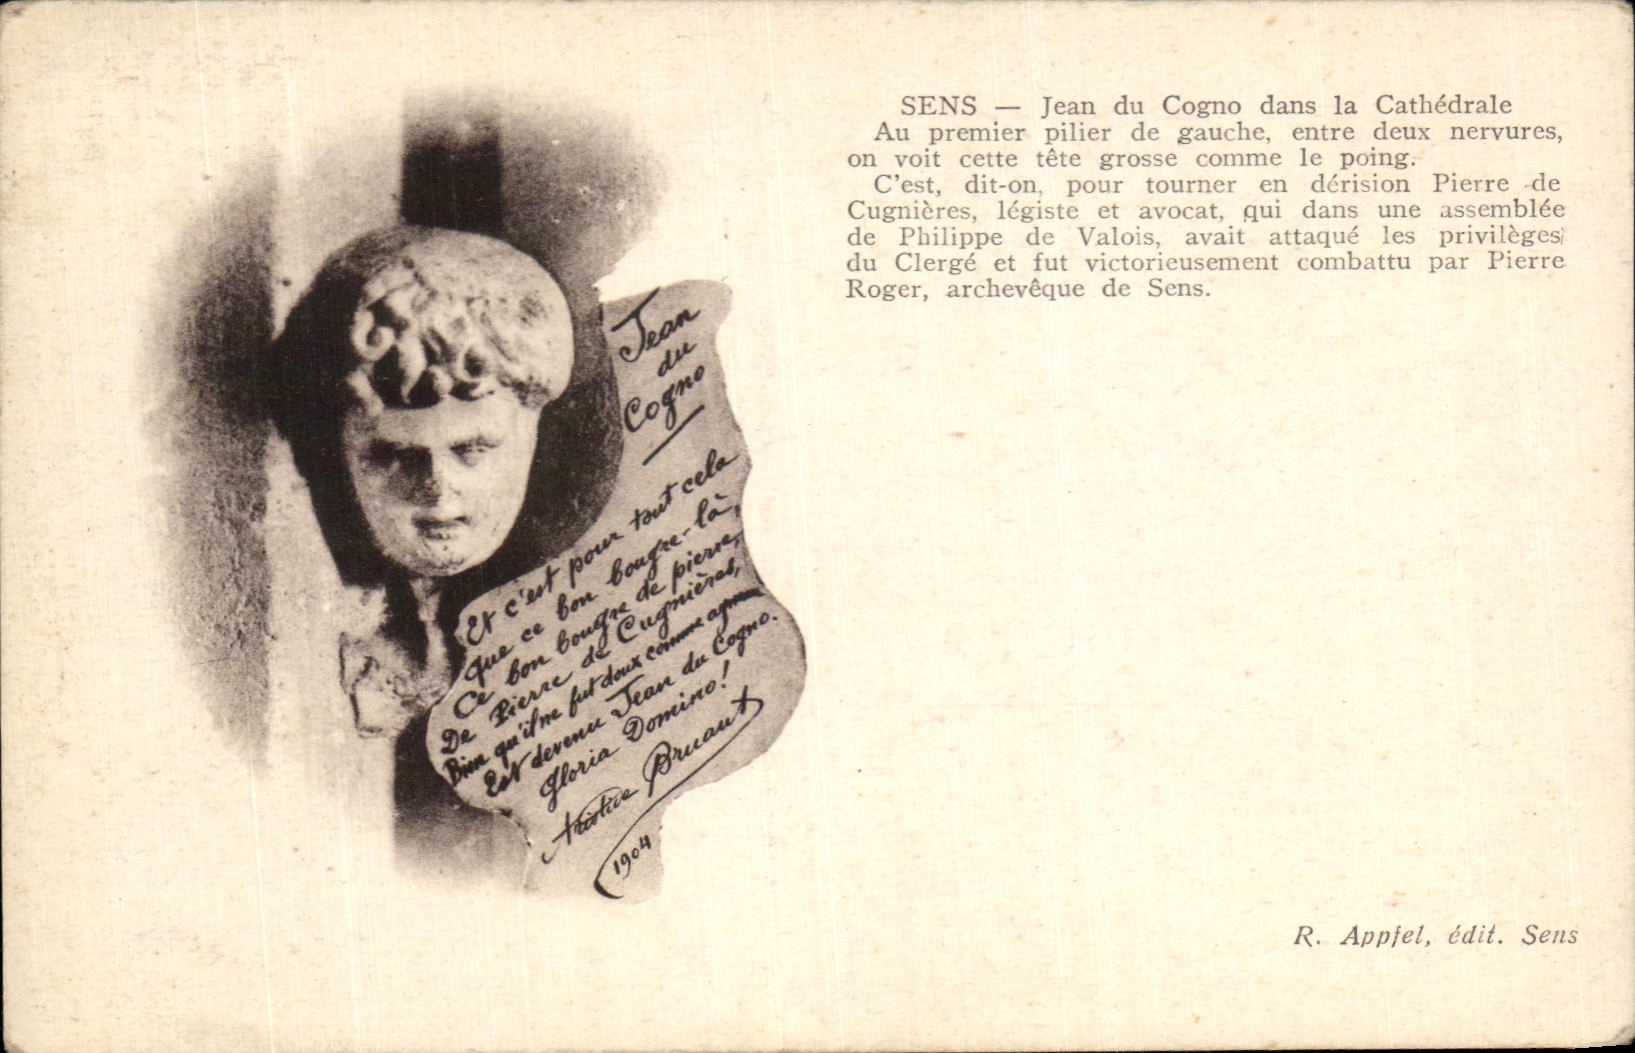 SENS — Jean du Cogno dans la Cathédrale
Au premier pilier de gauche, entre deux nervures,
on voit cette tête grosse comme le poing.
C'est, dit-on, pour tourner en dérision Pierre de
Cugnières, légiste et avocat, qui dans une assemblée
de Philippe de Valois, avait attaqué les privilèges
du Clergé et fut victorieusement combattu par Pierre
Roger, archevêque de Sens.
Jean
du
Cogno
Et c'est pour tout cela
Que ce bon bougre-là,
Ce bon bougre de pierre,
De Pierre de Cugnières,
Bien qu'il ne fut doux comme agneau
Est devenu Jean du Cogno.
Gloria Domino!
Aristide Bruant
1904
R. Appfel, édit. Sens